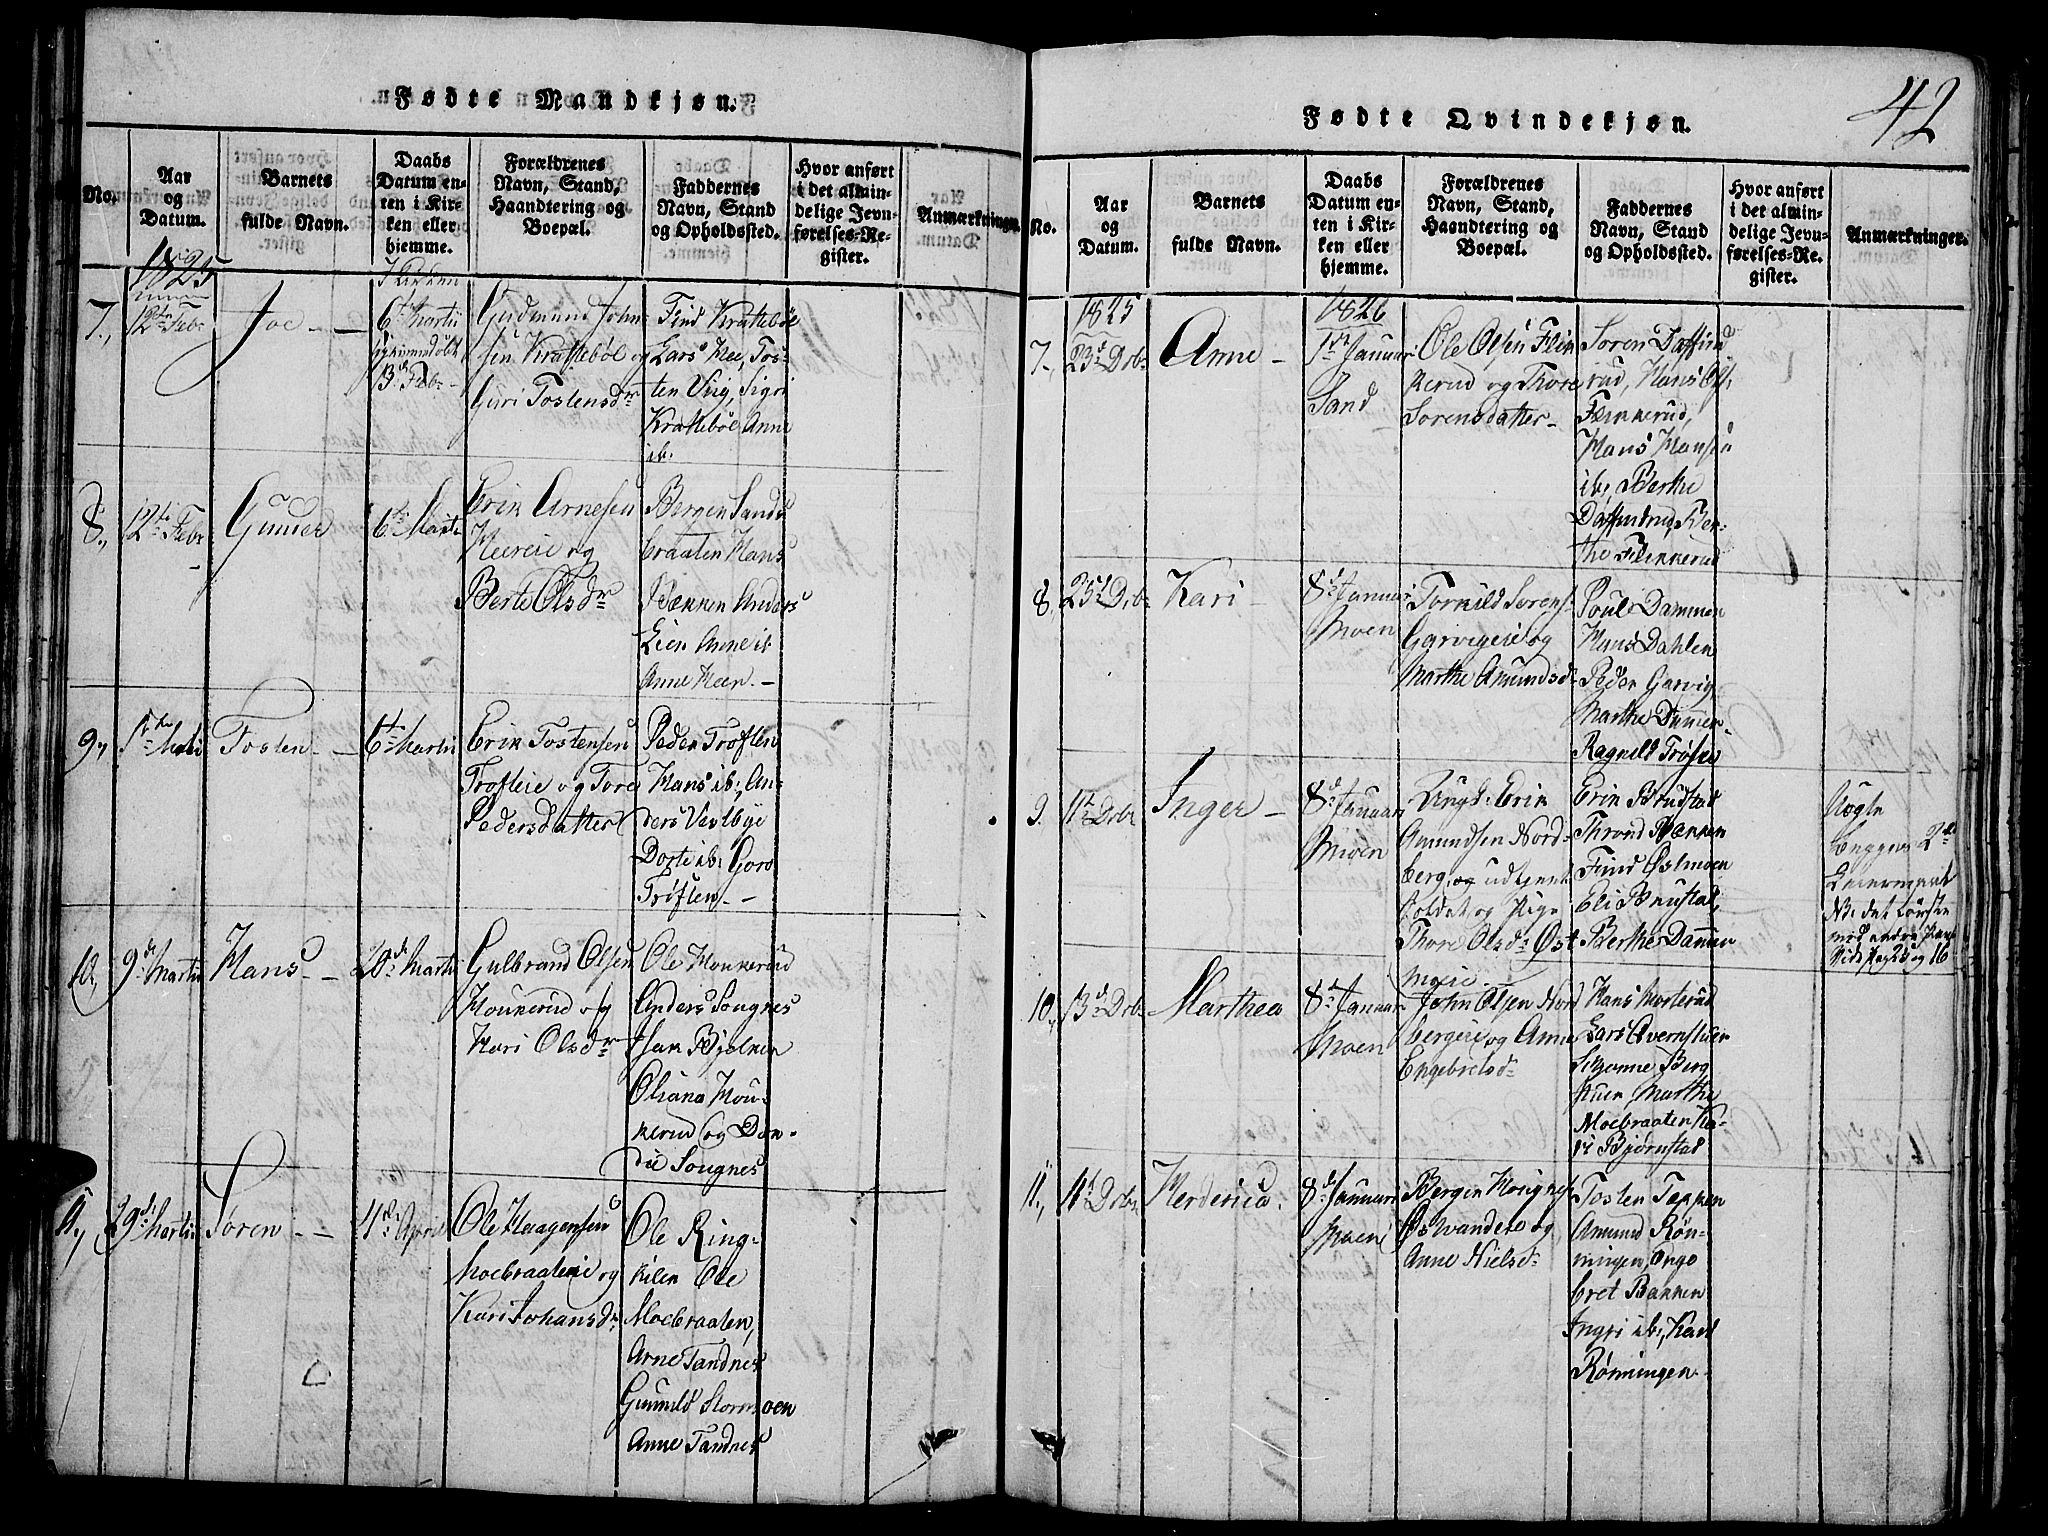 Fødte Mandkjøn.
No.
Aar
og
Datum.
Barnets
fulde Navn.
Daabs
Datum en-
ten i Kir-
ken eller
hjemme.
Forældrenes
Navn, Stand,
Haandtering og
Boepæl.
Faddernes
Navn, Stand
og Opholdssted.
Hvor anført
i det almin-
delige Jevn-
førelses-Re-
gister.
Anmærkninger.
1825
7.,
12te Febr
Joe
Kirken
6te Martii
13de Febr
Gudmund John-
sen Krattebøl og
Guri Tostensdr
Find Krattebøl
Lars Kee, Tos-
ten Viig, Sigri
Krattebøl Anne
ib.
8.,
12te Febr
Gunner
6te Martii
Erik Arnesen
Keereie og
Berte Olsdr
Bergen Sands-
braaten Hans
Bækken Anders
Lien Anne ib
Anne Keer.
9.,
1te Martii
Tosten
6te Martii
Erik Tostensen
Trofteie og Tore
Pedersdatter
Peder Troften
Hans ib:, An-
ders Vestbye
Dorte ib: Goro
Trøften
10,
9de Martii
Hans
20de Martii
Gulbrand Olsen
Houkerud og
Kari Olsdr
Ole Houkerud
Anders Sougnes
Isak Bjelker
Oliana Hou-
kerud og Dor-
te Sougnes
11,
29de Martii
Søren
4de April
Ole Haagensen
Moebraateie og
Kari Johansdr
Ole Ring-
kilen Ole
Moebraaten,
Arne Tandnes
Gunnild Stormoen
Anne Tandnes
42
Fødte Qvindekjøn.
No.
Aar
og
Datum.
Barnets
fulde Navn.
Daabs
Datum en-
ten i Kir-
ken eller
hjemme.
Forældrenes
Navn, Stand,
Haandtering og
Boepæl.
Faddernes
Navn, Stand
og Opholdssted.
Hvor anført
i det almin-
delige Jevn-
førelses-Re-
gister.
Anmærkninger.
1825
7.,
23d Dcbr
Anne
1826
1te Januar
Sand
Ole Olsen Flin-
kerud og Thore
Sorensdatter
Soren Daffind-
rud, Hans Ols.
Flinkerud,
Hans Hansen
ib, Berthe
Daffindrud, Ber-
the Flinkerud
8.
25d Dcbr
Kari
8d Januar
Moen
Torkild Sorens.
Garvigeie og
Marthe Amundsd
Poul Dammen
Hans Dahlen
Peder Garvig
Marthe Dammen
Ragnild Trøften
9.
11t Dcbr
Inger
8d Januar
Moen
Ungk: Erik
Amundsen Nord-
berg, udtjent
Soldat og Pige
Thore Olsd: Øst-
moeie
Erik Brustad
Thrond Bækken
Find Østmoen
Eli Brustad,
Berthe Dammen
Uægte
Begges 2de
Leiermaal
NB: det første
med andre
Vide Pag: og 16
10,
13d Dcbr
Marthea
8d Januar
Moen
John Olsen Nord-
bergeie og Anne
Engebretsd
Hans Morterud
Lars Qvernstuen
Susanne Berg
Marthe
Moebraaten Ka-
ri Bjørnstad
11,
11t Dcbr
Herderica
8d Januar
Moen
Bergen
og
Anne Nielsd
Tosten Tappen
Amund Røn-
ningen, Enge-
bret Bakken
Ingri ib:, Kari
Rønningen